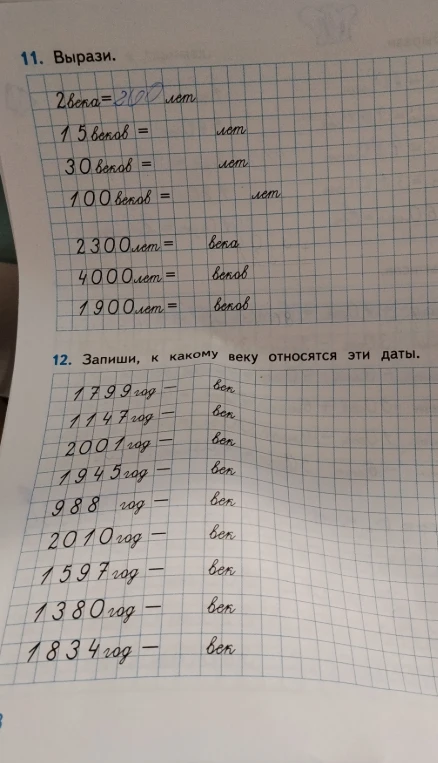 11. Вырази.
2 века = 200 лет
15 веков = лет
30 веков = лет
100 веков = лет
2300 лет = века
4000 лет = веков
1900 лет = веков
12. Запиши, к какому веку относятся эти даты.
1799 год — век
1147 год — век
2001 год — век
1945 год — век
988 год — век
2010 год — век
1597 год — век
1380 год — век
1834 год — век